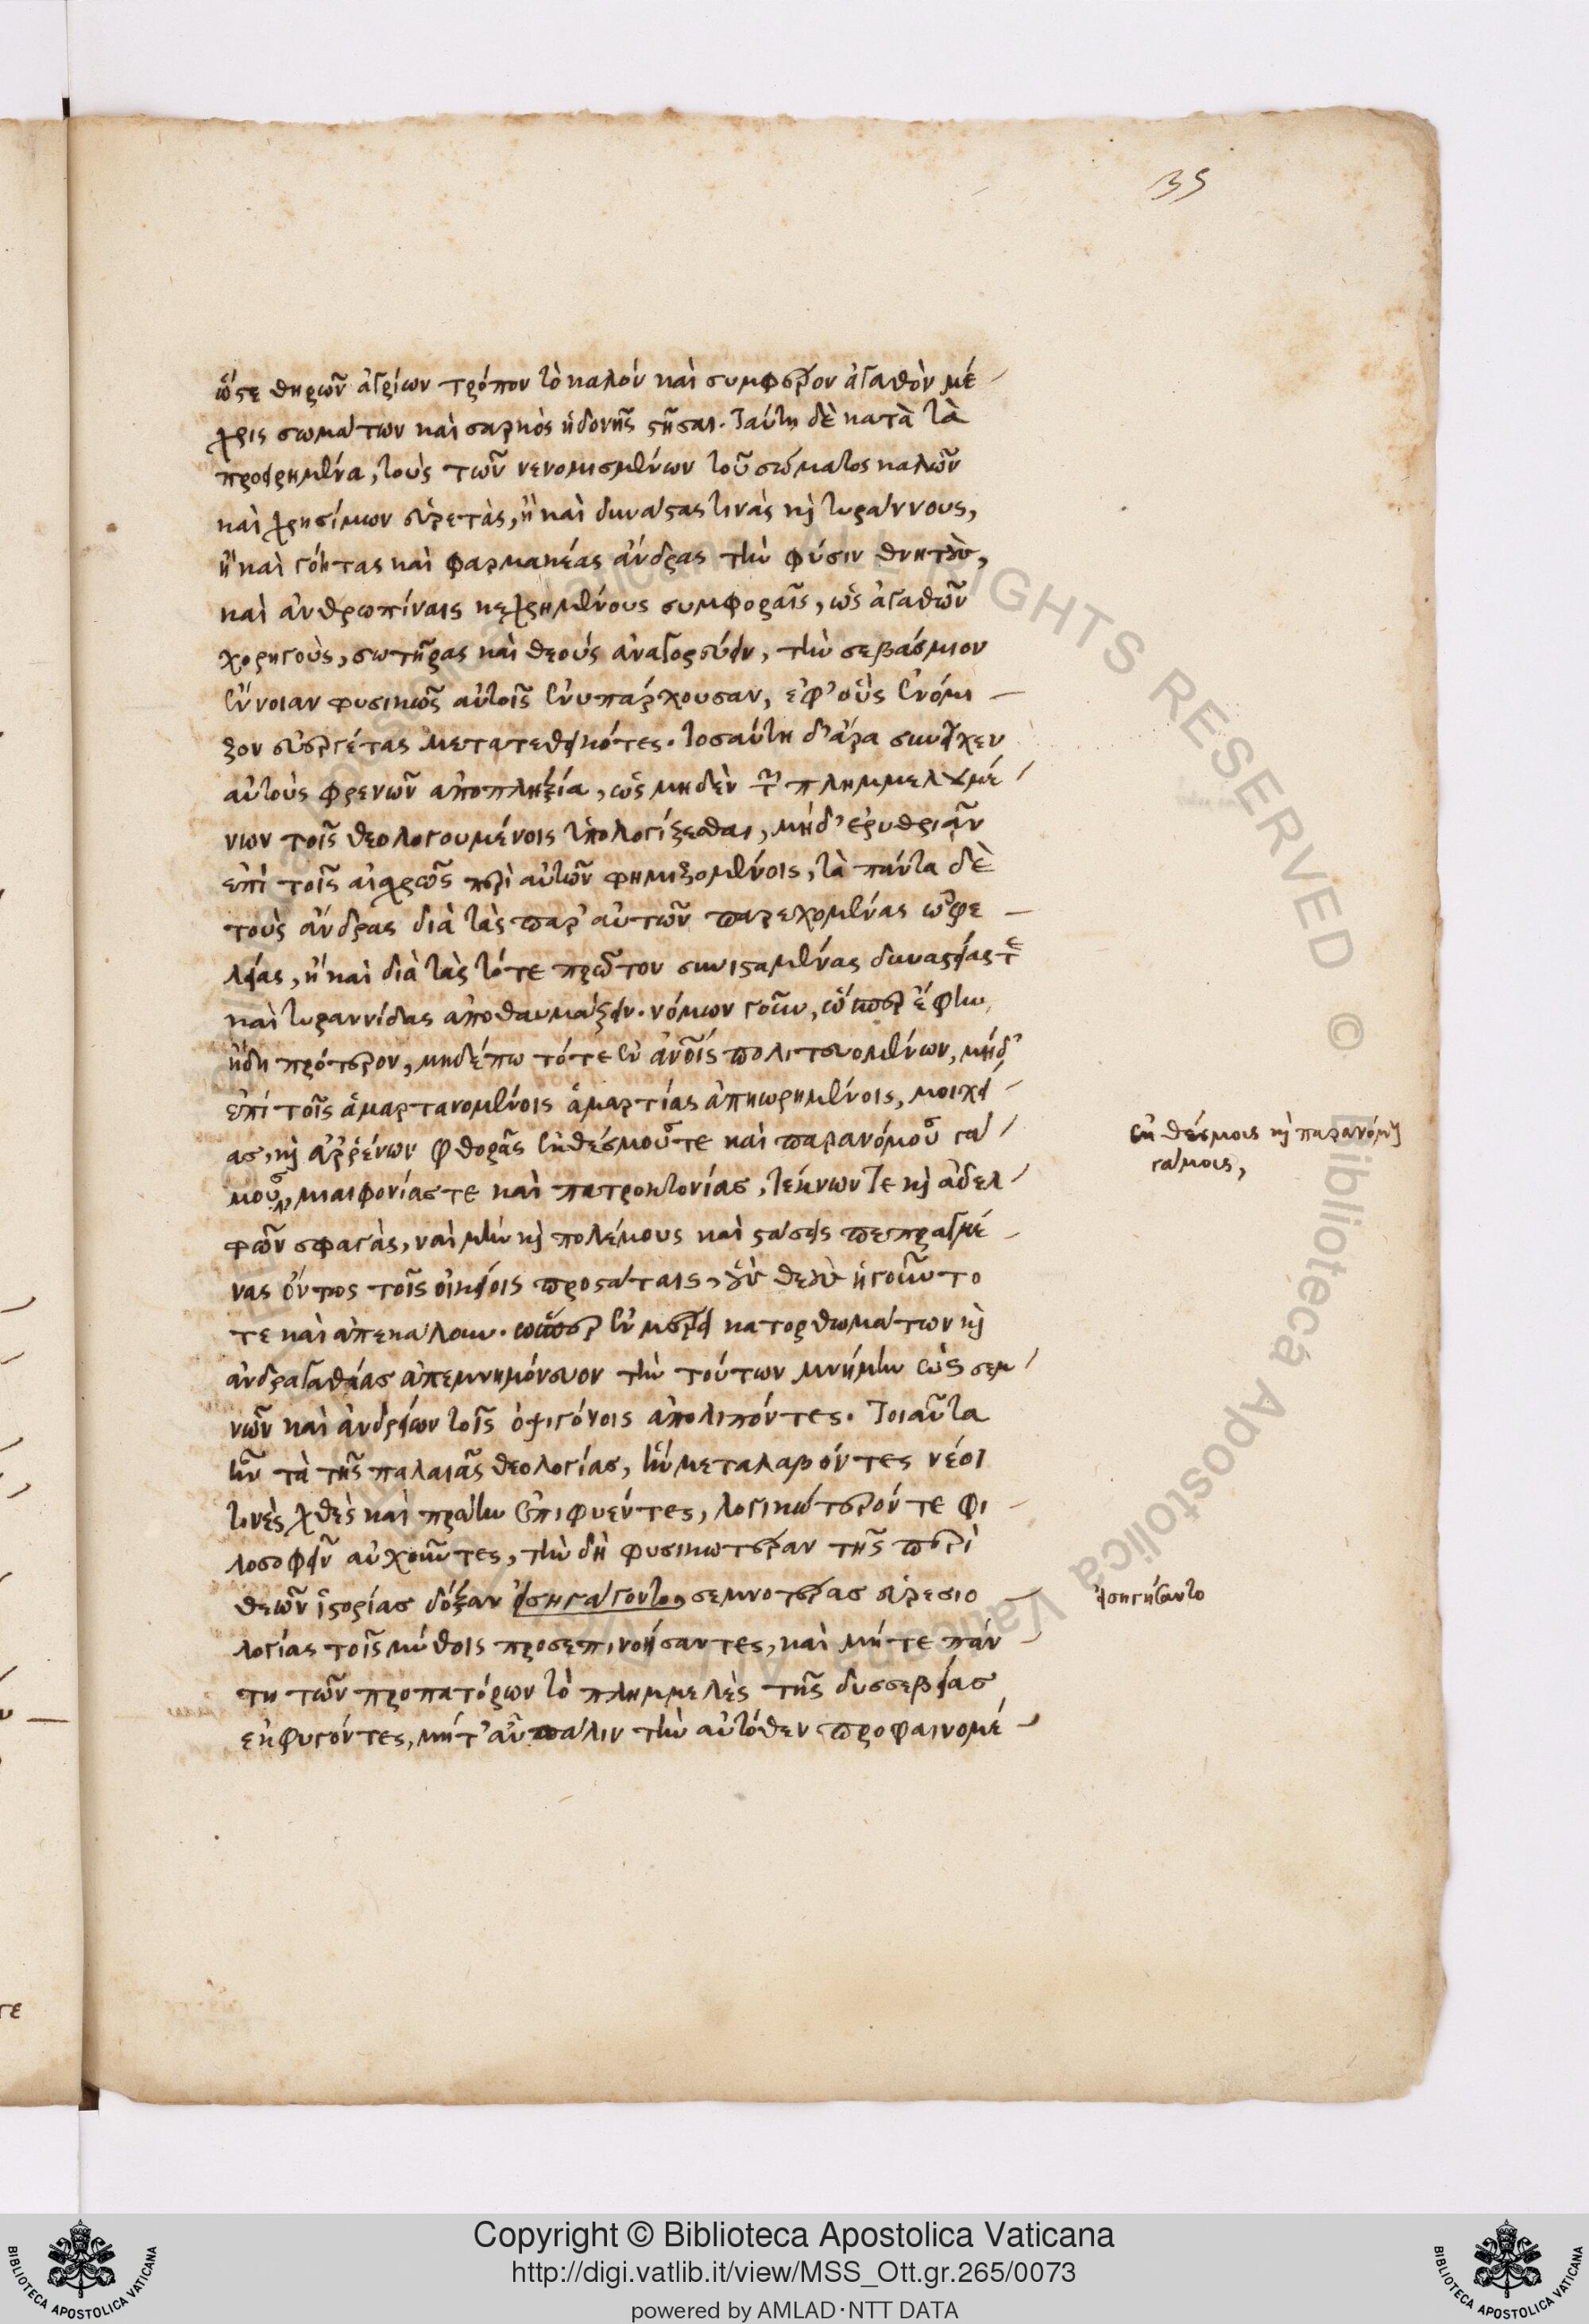 35
ὥστε θηρῶν ἀγρίων τρόπον τὸ καλὸν καὶ συμφέρον ἀγαθὸν μέ
χρις σωμάτων καὶ σαρκὸς ἡδονῆς στῆσαι. Ταύτη δὲ κατὰ τὰ
προειρημένα, τοὺς τῶν νενομισμένων τοῦ σώματος καλῶν
καὶ χρησίμων εὑρετὰς, ἢ καὶ δυνάστας τινὰς κ τυράννους,
ἢ καὶ γόητας καὶ φαρμακέας ἄνδρας τὴν φύσιν θνητοὺς,
καὶ ἀνθρωπίναις κεχρημένους συμφοραῖς, ὡς ἀγαθῶν
χορηγοὺς, σωτῆρας καὶ θεοὺς ἀναγορεύειν, τὴν σεβάσμιον
ἔννοιαν φυσικῶς αὐτοῖς ἐνυπάρχουσαν, ἐφ' οὓς ἐνόμι
ζον εὐεργέτας μετατεθεικότες. Τοσαύτη δ' ἄρα συνεῖχεν
αὐτοὺς φρενῶν ἀποπληξία, ὡς μηδὲν τῶν πλημμελουμέ
νων τοῖς θεολογουμένοις ὑπολογίζεσθαι, μήδ' ἐρυθριᾶν
ἐπὶ τοῖς αἰσχρῶς περὶ αὐτῶν φημιζομένοις, τὰ πάντα δὲ
τοὺς ἄνδρας διὰ τὰς παρ' αὐτῶν παρεχομένας ὠφε
λείας, ἢ καὶ διὰ τὰς τότε πρῶτον συνισταμένας δυναστείας τε
καὶ τυραννίδας ἀποθαυμάζειν. νόμων γοῦν, ὥσπερ ἔφην
ἤδη πρότερον, μηδέπω τότε ἐν ἀνοῖς πολιτευομένων, μήδ'
ἐπὶ τοῖς ἁμαρτανομένοις ἁμαρτίας ἀπηωρημένοις, μοιχεί
ας, κ ἀῤῥένων φθορὰς ἐκθέσμους τε καὶ παρανόμους γά
μους, μιαιφονίας τε καὶ πατροκτονίας, τέκνων τε κ ἀδελ
φῶν σφαγὰς, ναὶ μὴν κ πολέμους καὶ στάσεις πεπραγμέ
νας ὄντως τοῖς οἰκείοις προστάταις, οὓς θεοὺς ἡγοῦντο
τε καὶ ἀπεκάλουν. ὥσπερ ἐν μέρει κατορθωμάτων κ
ἀνδραγαθίας ἀπεμνημόνευον τὴν τούτων μνήμην ὡς σεμ
νῶν καὶ ἀνδρείων τοῖς ὀψιγόνοις ἀπολιπόντες. Τοιαῦτα
ἦν τὰ τῆς παλαιᾶς θεολογίας, ἣν μεταλαβόντες νέοι
τινὲς χθὲς καὶ πρώην ἐπιφυέντες, λογικώτερόν τε φι
λοσοφεῖν αὐχοῦντες, τὴν δὴ φυσικωτέραν τῆς περὶ
θεῶν ἱστορίας δόξαν εἰσηγάγοντο, σεμνοτέρας εὑρεσιο
λογίας τοῖς μύθοις προσεπινοήσαντες, καὶ μήτε πάν
τη τῶν προπατόρων τὸ πλημμελὲς τῆς δυσσεβείας
ἐκφυγόντες, μήτ' αὖ πάλιν τὴν αὐτόθεν προφαινομέ
ἐκθέσμοις κ παρανόμοις
γάμοις,
εἰσηγήσαντο
τε
Copyright © Biblioteca Apostolica Vaticana
http://digi.vatlib.it/view/MSS_Ott.gr.265/0073
powered by AMLAD·NTT DATA
BIBLIOTECA APOSTOLICA VATICANA
BIBLIOTECA APOSTOLICA VATICANA